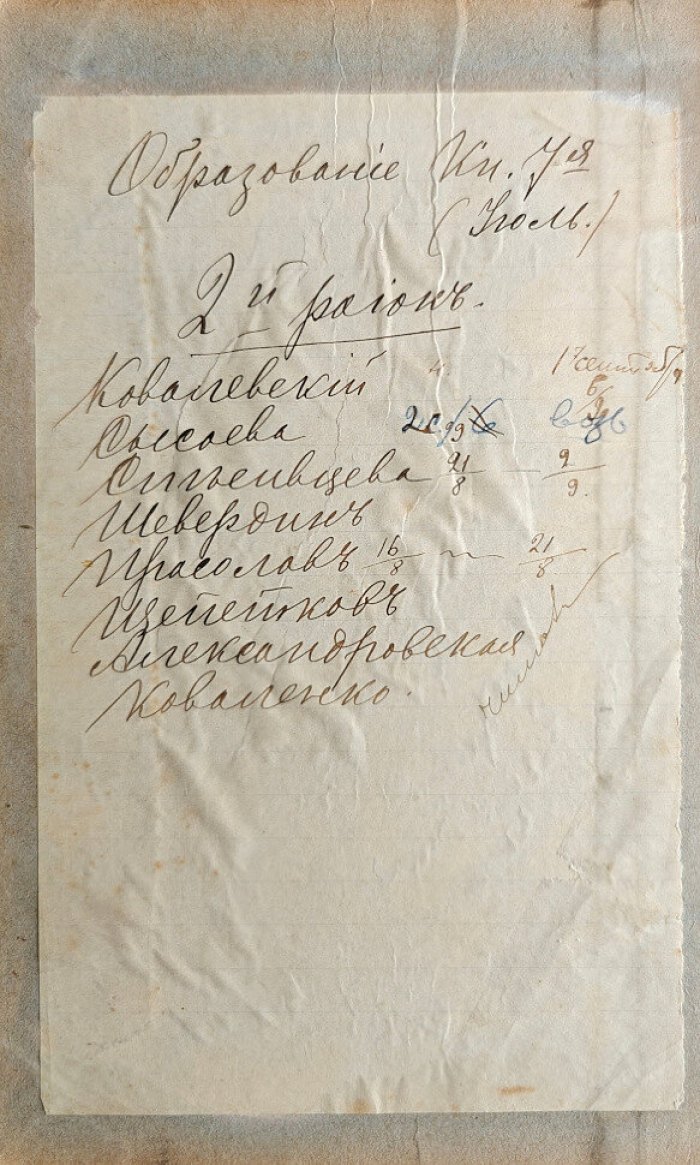 Образованіе Кн. 7я
(Іюль.)
2й раіонъ.
Ковалевскій
Сысоева
Ститьивцева 21/8 — 9/9.
Шевердинъ
Прасоловъ 16/8 — 21/8
Щепетковъ
Александровская
Коваленко.